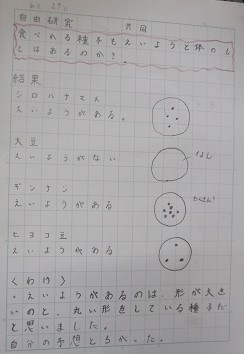 自由研究 共同
食べれる種子もえいようと体のし
しはあるのか?。
結果
シロハナマメ
えいようがある。
大豆
えいようがない なし
ギンナン
えいようがある たくさん!
ヒヨコ豆
えいようがある
〈わけ〉
・えいようがあるのは、形が大き
いのと、丸い形をしている種まだ
と思いました。
自分の予想とちがった。